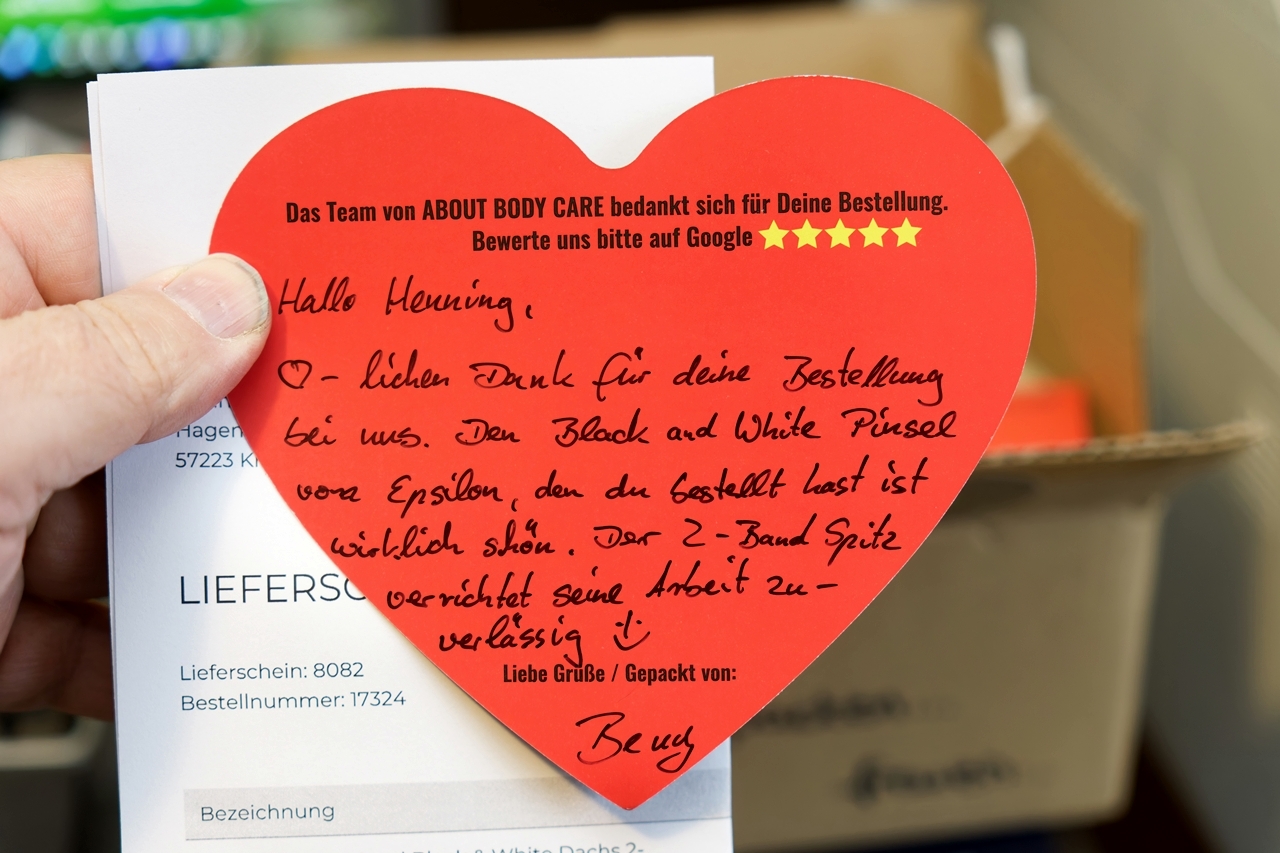 Das Team von ABOUT BODY CARE bedankt sich für Deine Bestellung.
Bewerte uns bitte auf Google
Hallo Henning,
♡- lichen Dank für deine Bestellung
bei uns. Den Black and White Pinsel
von Epsilon, den du bestellt hast ist
wirklich schön. Der 2-Band Spitz
verrichtet seine Arbeit zu-
verlässig
Liebe Grüße / Gepackt von:
Hagen
57223 K
LIEFERSC
Lieferschein: 8082
Bestellnummer: 17324
Bezeichnung
Black & White Dachs 2-